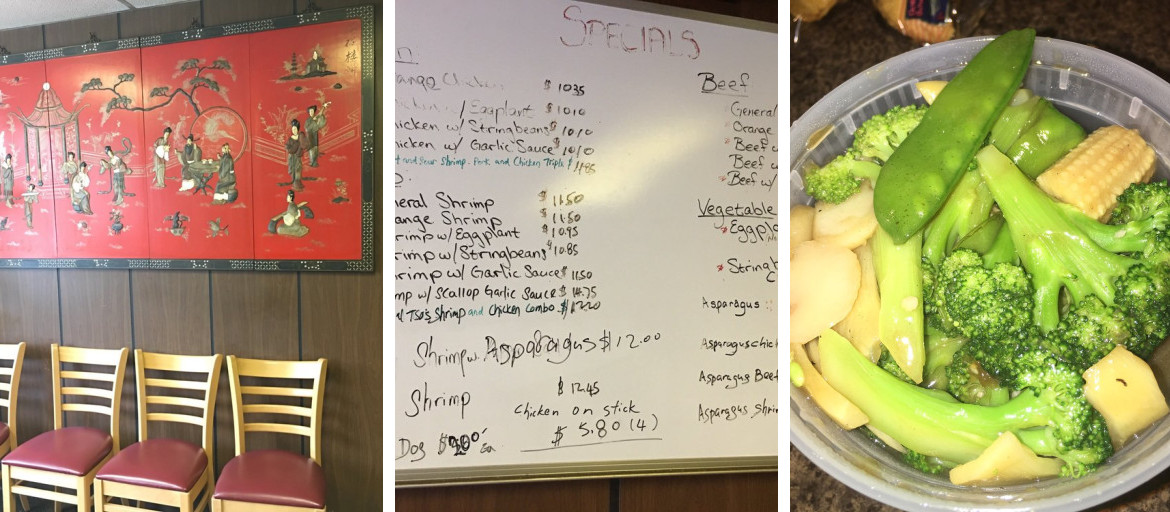 SPECIALS
ange Chicken $ 10.35
/ Eggplant $ 10.10
hicken w/ Stringbeans $ 10.10
hicken w/ Garlic Sauce $ 10.10
t and Sour Shrimp, Pork, and Chicken Triple $ 11.85
neral Shrimp $ 11.50
ange Shrimp $ 11.50
rimp w/ Eggplant $ 10.95
rimp w/ Stringbeans $ 10.85
rimp w/ Garlic Sauce $ 11.50
mp w/ Scallop Garlic Sauce $ 14.75
Tso's Shrimp and Chicken Combo $ 12.20
Shrimp w. Asparagus $12.00
Shrimp $ 12.45
Chicken on stick
$ 5.80 (4)
Dog Ea
Beef
General
Orange
Beef w
Beef w
Beef w/
Vegetable
Eggpla
Stringb
Asparagus
Asparagus chick
Asparagus Beef
Asparagus Shrim